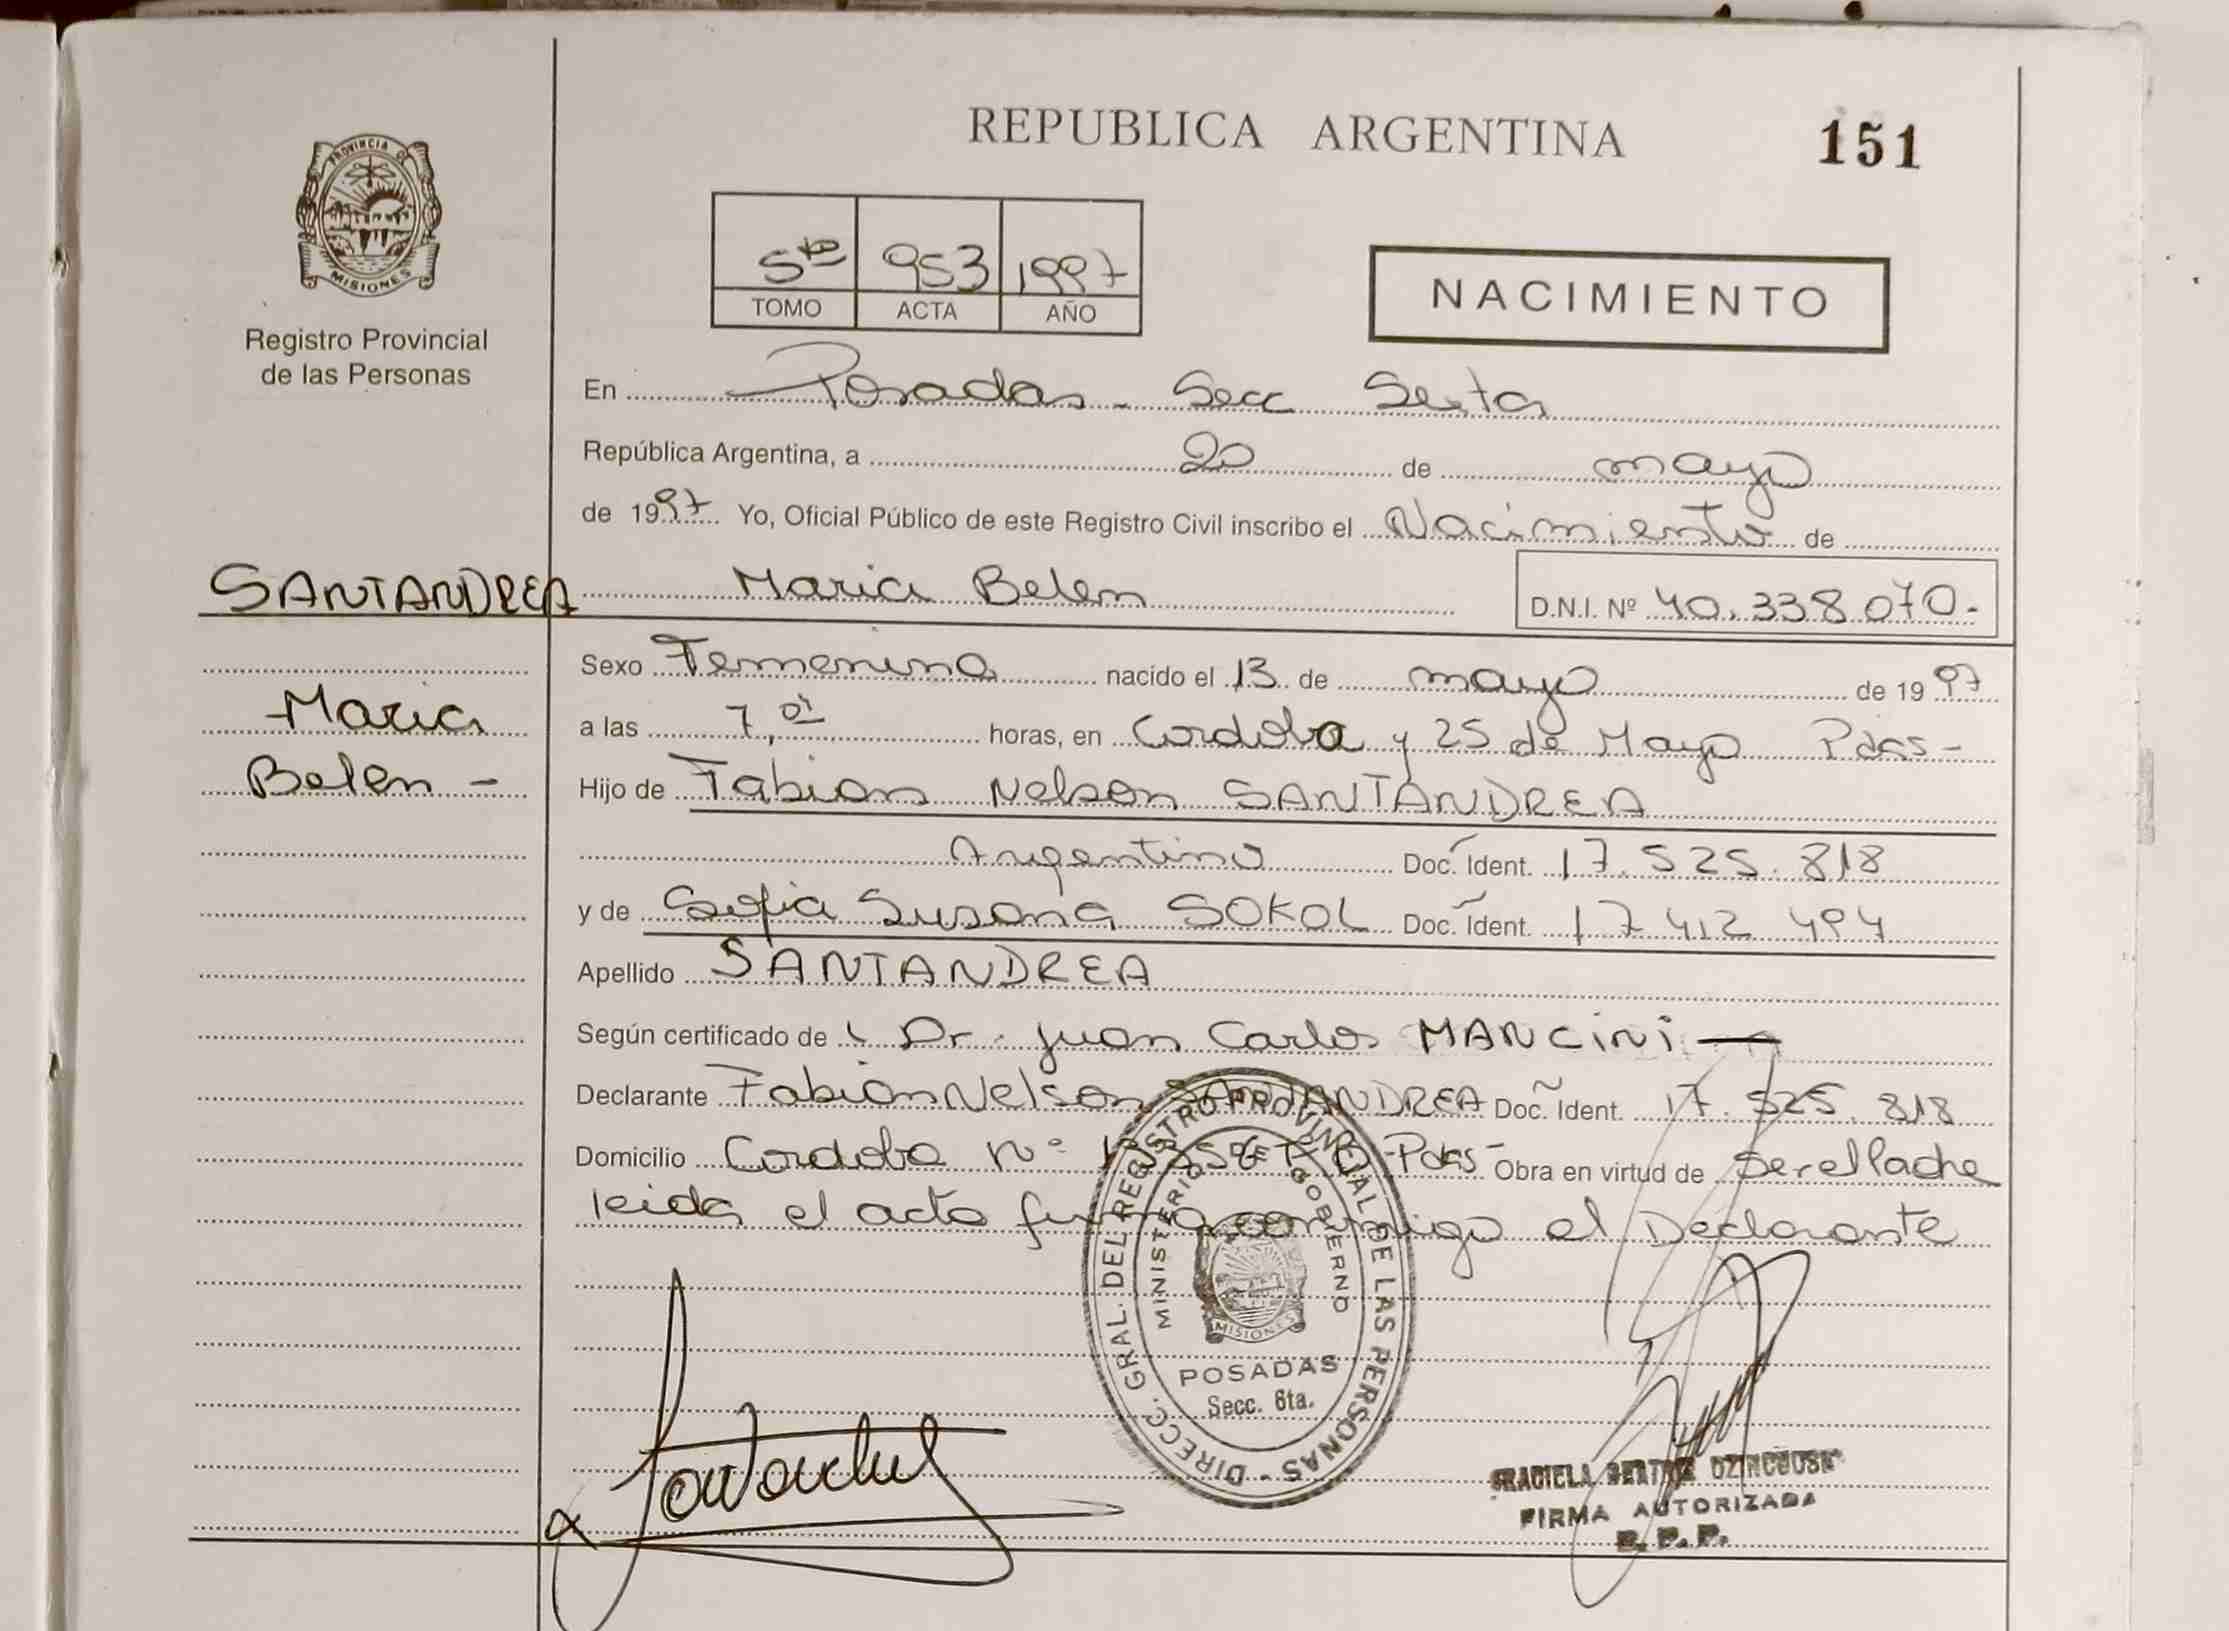 REPUBLICA ARGENTINA
151
PROVINCIA DE
MISIONES
Registro Provincial
de las Personas
5to 953 1997
TOMO ACTA AÑO
NACIMIENTO
En Posadas - Secc Sexta
República Argentina, a 20 de mayo
de 1997 Yo, Oficial Público de este Registro Civil inscribo el Nacimiento de
SANTANDREA Maria Belem D.N.I. Nº 40.338.070.-
Sexo Femenino nacido el 13 de mayo de 1997
Maria
a las 7, horas, en Cordoba y 25 de Mayo Pdas-
Belen -
Hijo de Fabian Nelson SANTANDREA
Argentino Doc. Ident. 17.525.818
y de Sofia Susana SOKOL Doc. Ident. 17 412 494
Apellido SANTANDREA
Según certificado de Dr. Juan Carlos MANCINI
Declarante Fabian Nelson SANTANDREA Doc. Ident. 17.525.818
Domicilio Cordoba nº Pdas- Obra en virtud de Serellache
leida el acta firma conmigo el Declarante
DIRECC. GRAL. DEL REGISTRO PROVINCIAL DE LAS PERSONAS -
MINISTERIO DE GOBIERNO
MISIONES
POSADAS
Secc. 6ta.
GRACIELA BEATRIZ
FIRMA AUTORIZADA
R.P.P.